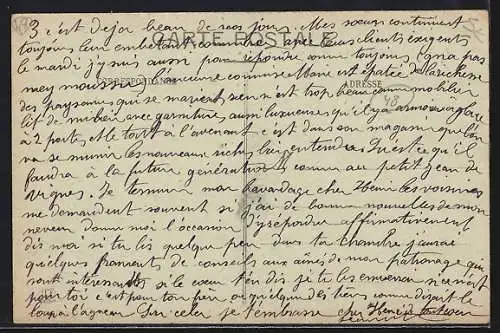 3 c'est dejor beau de nos jours. Mes soeurs continuent
toujours leur embetant commerce avec leurs clients exigents
CARTE POSTALE
le mardi j'y suis aussi pour repondre comme toujours y en a pas
CORRESPONDANCE
ADRESSE
mey moussu l'heureuse commere Marie est épatée de la richesse
des paysannes qui se marient rien n'est trop beau comme mobilier
lit de milieu avec garniture aussi luxueuse qu'il y a armoire a glace
à 2 portes et le tout à l'avenant c'est dans son magasin que l'on
va se munir les nouveaux riches exigent tendre Qu'est ce qu'il
faudra à la future génération comme au petit jean de
vignes. Je termine mon bavardage cher Henri les voisines
me demandent souvent si j'ai de bonnes nouvelles de mon
neveu donne moi l'occasion d'y répondre affirmativement
dis moi si tu lis quelque peu dans ta chambre j'aurai
quelques fragments de conseils aux ainés de mon patronage qui
sont intéressants si le coeur t'en dis je te les enverrai si ce n'est
pour toi c'est pour ton père ou quelqu'un des tiens comme disait le
loup à l'agneau Sur cela je t'embrasse cher Henri